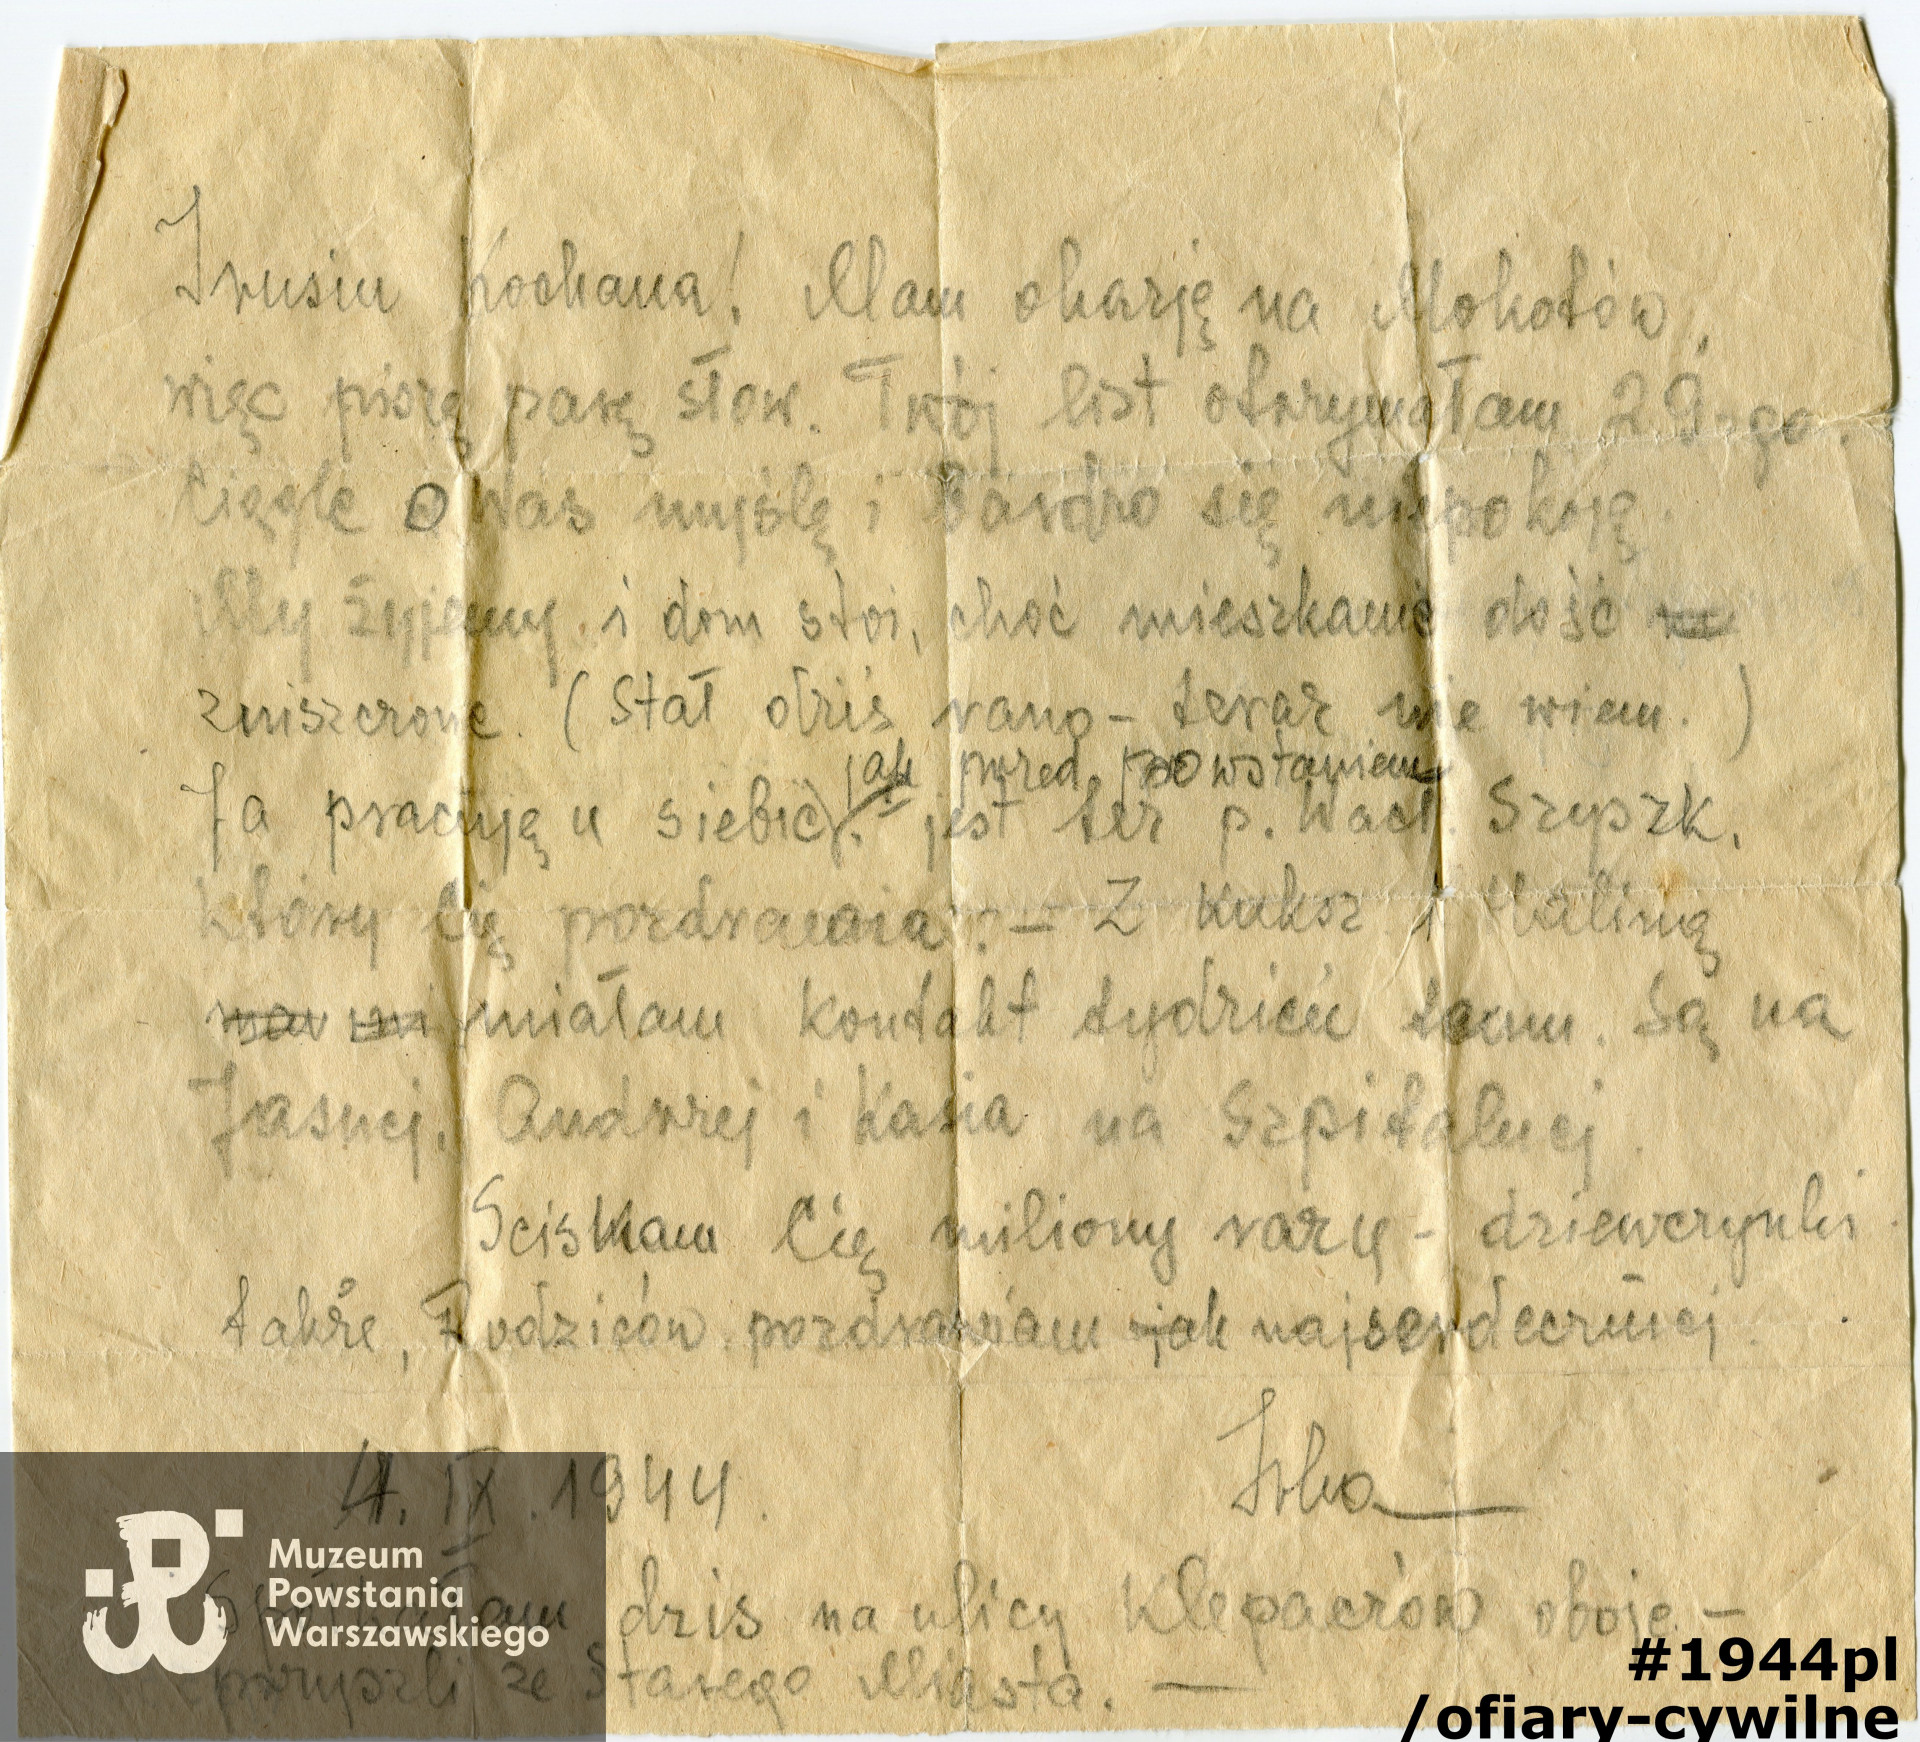 Irusiu Kochana! Mam okazję na Mokotów,
więc piszę parę słów. Twój list otrzymałam 29-go.
Ciągle o Was myślę i bardzo się niepokoję.
My żyjemy i dom stoi, choć mieszkanie dość
zniszczone. (Stał dziś rano - teraz nie wiem.)
jak przed powstaniem
Ja pracuję u siebie, jest też p. Wacł. Szyszk.
który Cię pozdrawia. - Z Kuksz i Haliną
miałam kontakt tydzień temu. Są na
Jasnej. Andrzej i Kasia na Szpitalnej.
Sciskam Cię miliony razy - dziewczynki
także, Rodziców pozdrawiam jak najserdeczniej.
Irka
4. IX. 1944.
Spotkałam dziś na ulicy Klepaczów oboje -
przyszli ze Starego Miasta. -
Muzeum
Powstania
Warszawskiego
#1944pl
/ofiary-cywilne